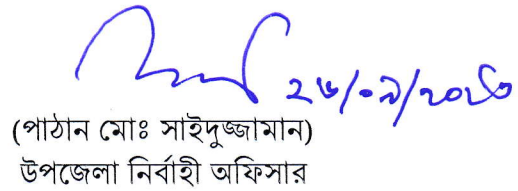 ২৬/০৯/২০২৩
(পাঠান মোঃ সাইদুজ্জামান)
উপজেলা নির্বাহী অফিসার